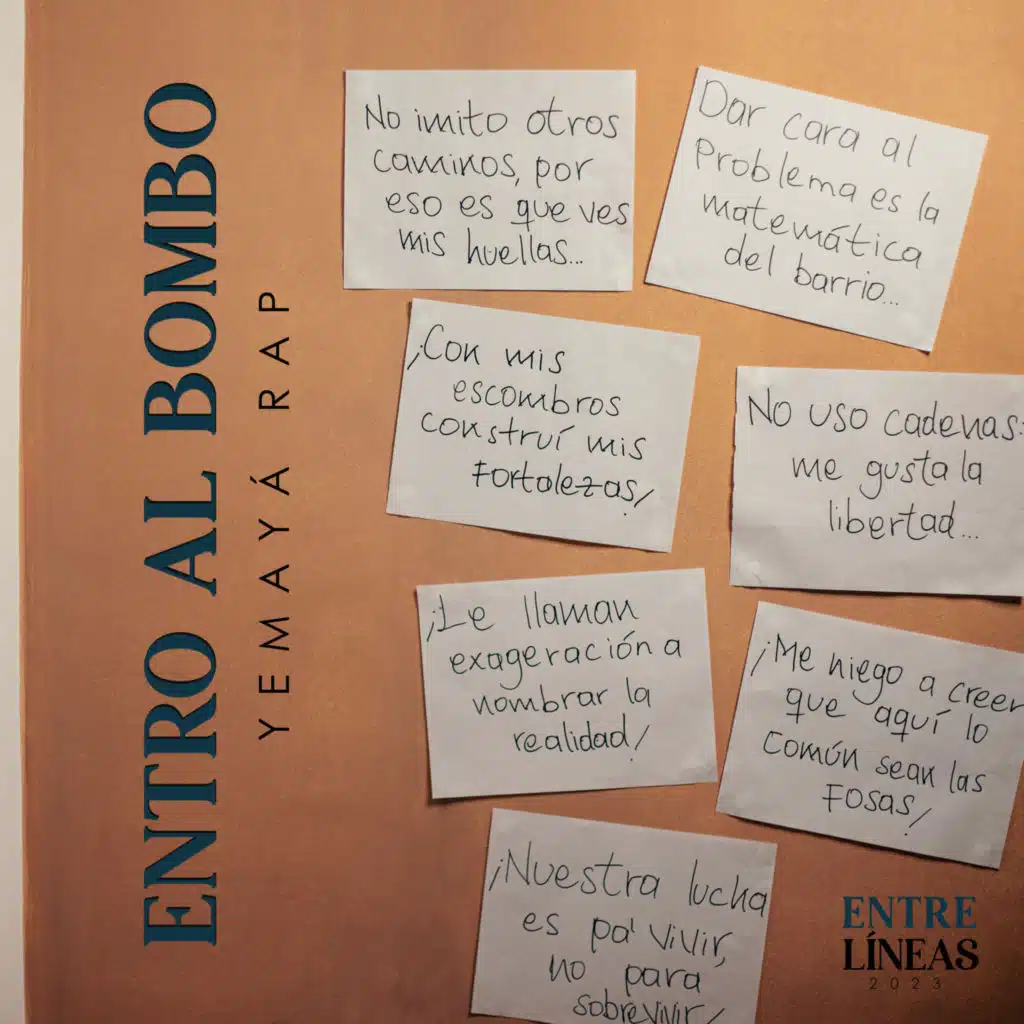 ENTRO AL BOMBO
YEMAYÁ RAP
No imito otros
caminos, por
eso es que ves
mis huellas...
Dar cara al
Problema es la
matemática
del barrio...
¡Con mis
escombros
construí mis
Fortalezas!
No uso cadenas:
me gusta la
libertad...
¡Le llaman
exageración a
nombrar la
realidad!
¡Me niego a creer
que aquí lo
común sean las
Fosas!
¡Nuestra lucha
es pa' vivir,
no para
sobrevivir!
ENTRE
LÍNEAS
2023